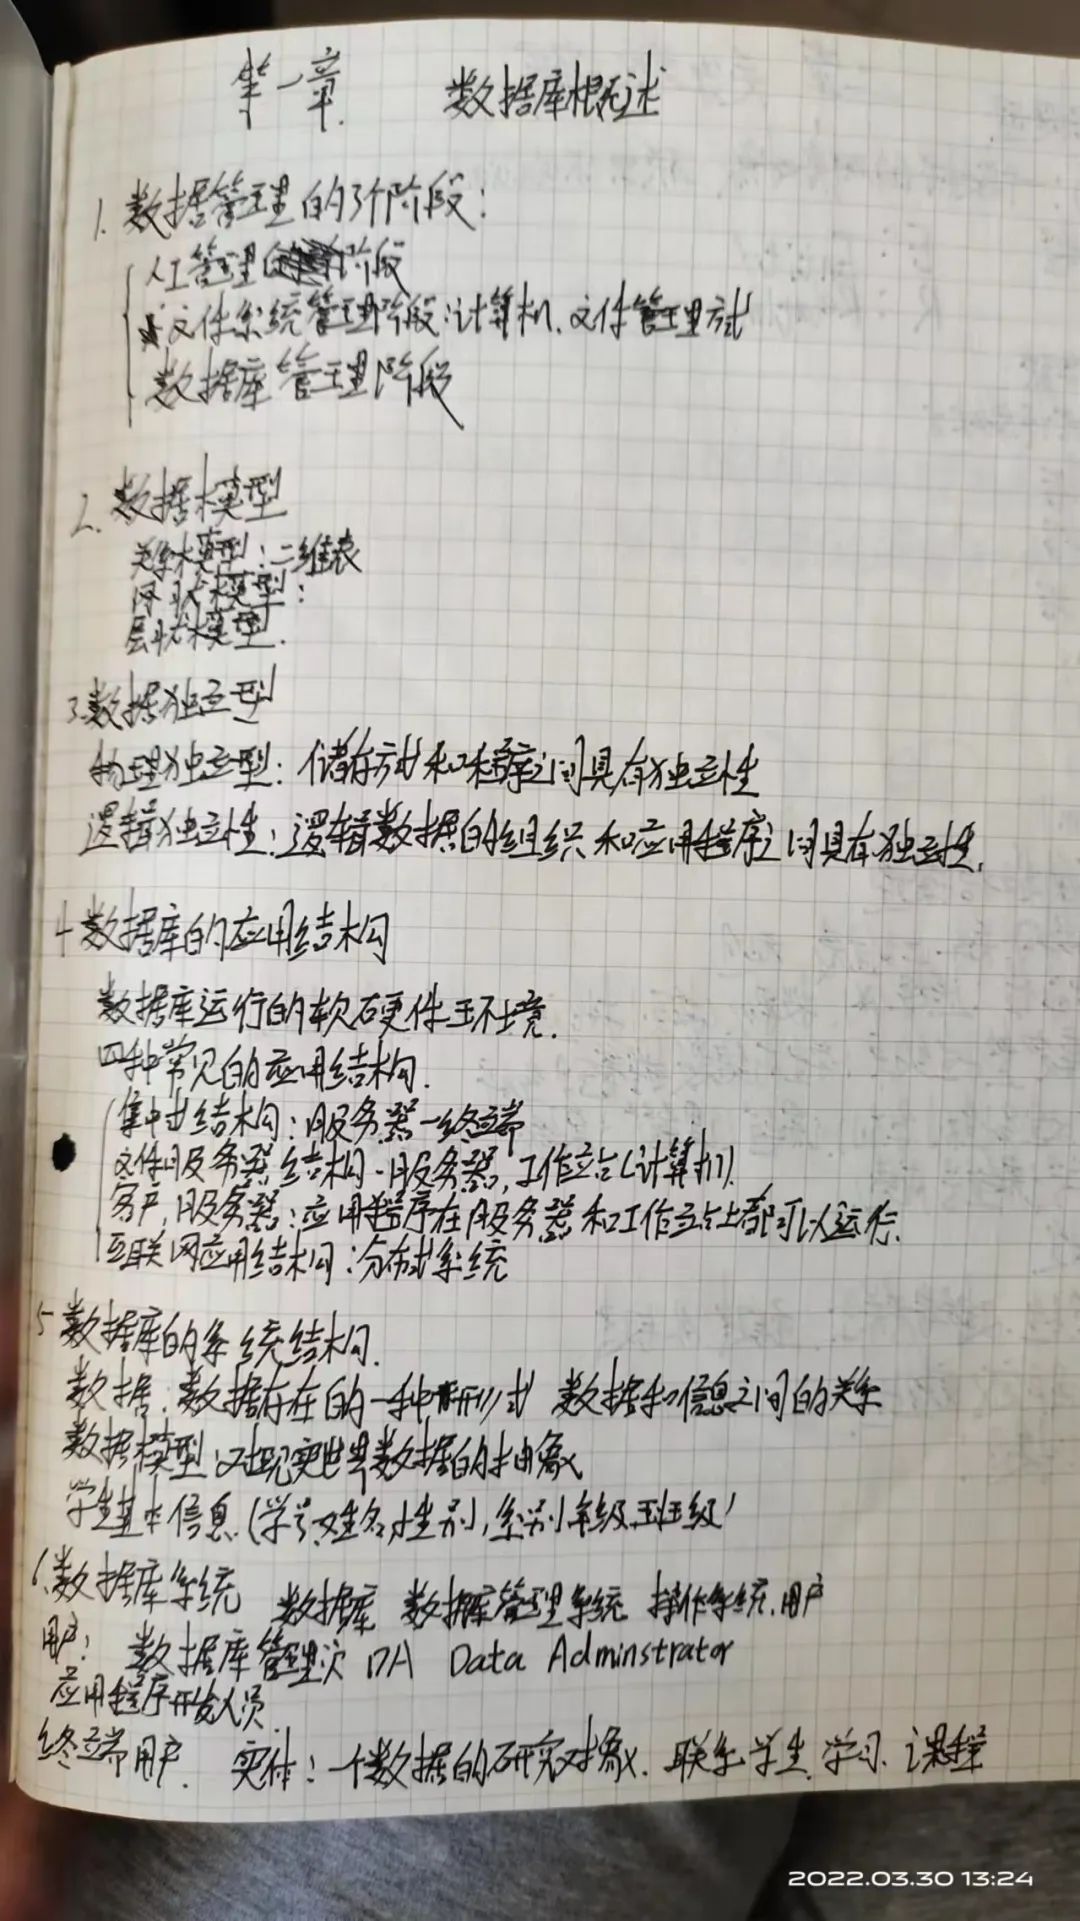 第一章 数据库概述
1. 数据管理的3个阶段：
人工管理阶段
文件系统管理阶段：计算机、文件管理方式
数据库管理阶段
2. 数据模型
关系模型：二维表
网状模型：
层状模型.
3.数据独立型
物理独立型：储存方式和程序之间具有独立性
逻辑独立性：逻辑数据的组织和应用程序之间具有独立性.
4 数据库的应用结构
数据库运行的软硬件环境.
四种常见的应用结构.
集中式结构：服务器—终端
文件服务器结构·服务器,工作站(计算机).
客户,服务器：应用程序在服务器和工作站上都可以运行.
互联网应用结构：分布式系统
5 数据库的系统结构.
数据.数据存在的一种形式 数据和信息之间的关系
数据模型 对现实世界数据的抽象
学生基本信息(学号,姓名,性别,系别年级班级)
6.数据库系统 数据库 数据库管理系统 操作系统.用户
用户： 数据库管理 DA Data Adminstrator
应用程序开发人员.
终端用户. 实体：一个数据的研究对象. 联系 学生 学习 课程
2022.03.30 13:24